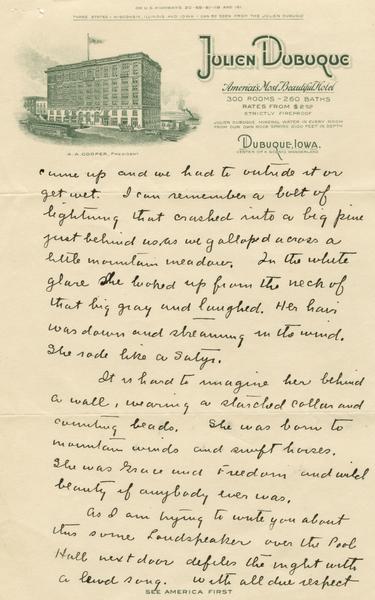 ON U.S. HIGHWAYS 20-55-61-118 AND 151
THREE STATES - WISCONSIN, ILLINOIS AND IOWA - CAN BE SEEN FROM THE JULIEN DUBUQUE
JULIEN DUBUQUE
America's Most Beautiful Hotel
300 ROOMS - 260 BATHS
RATES FROM $2.50
STRICTLY FIREPROOF
JULIEN DUBUQUE MINERAL WATER IN EVERY ROOM
FROM OUR OWN ROCK SPRING 2100 FEET IN DEPTH
DUBUQUE, IOWA.
CENTER OF A SCENIC WONDERLAND
A. A. COOPER, PRESIDENT
came up and we had to outride it or
get wet. I can remember a bolt of
lightning that crashed into a big pine
just behind us as we galloped across a
little mountain meadow. In the white
glare she looked up from the neck of
that big gray and laughed. Her hair
was down and streaming in the wind.
She rode like a Satyr.
It is hard to imagine her behind
a wall, wearing a starched collar and
counting beads. She was born to
mountain winds and swift horses.
She was Grace and Freedom and wild
beauty if anybody ever was.
As I am trying to write you about
this some Loudspeaker over the Pool
Hall next door defiles the night with
a lewd song. With all due respect
SEE AMERICA FIRST